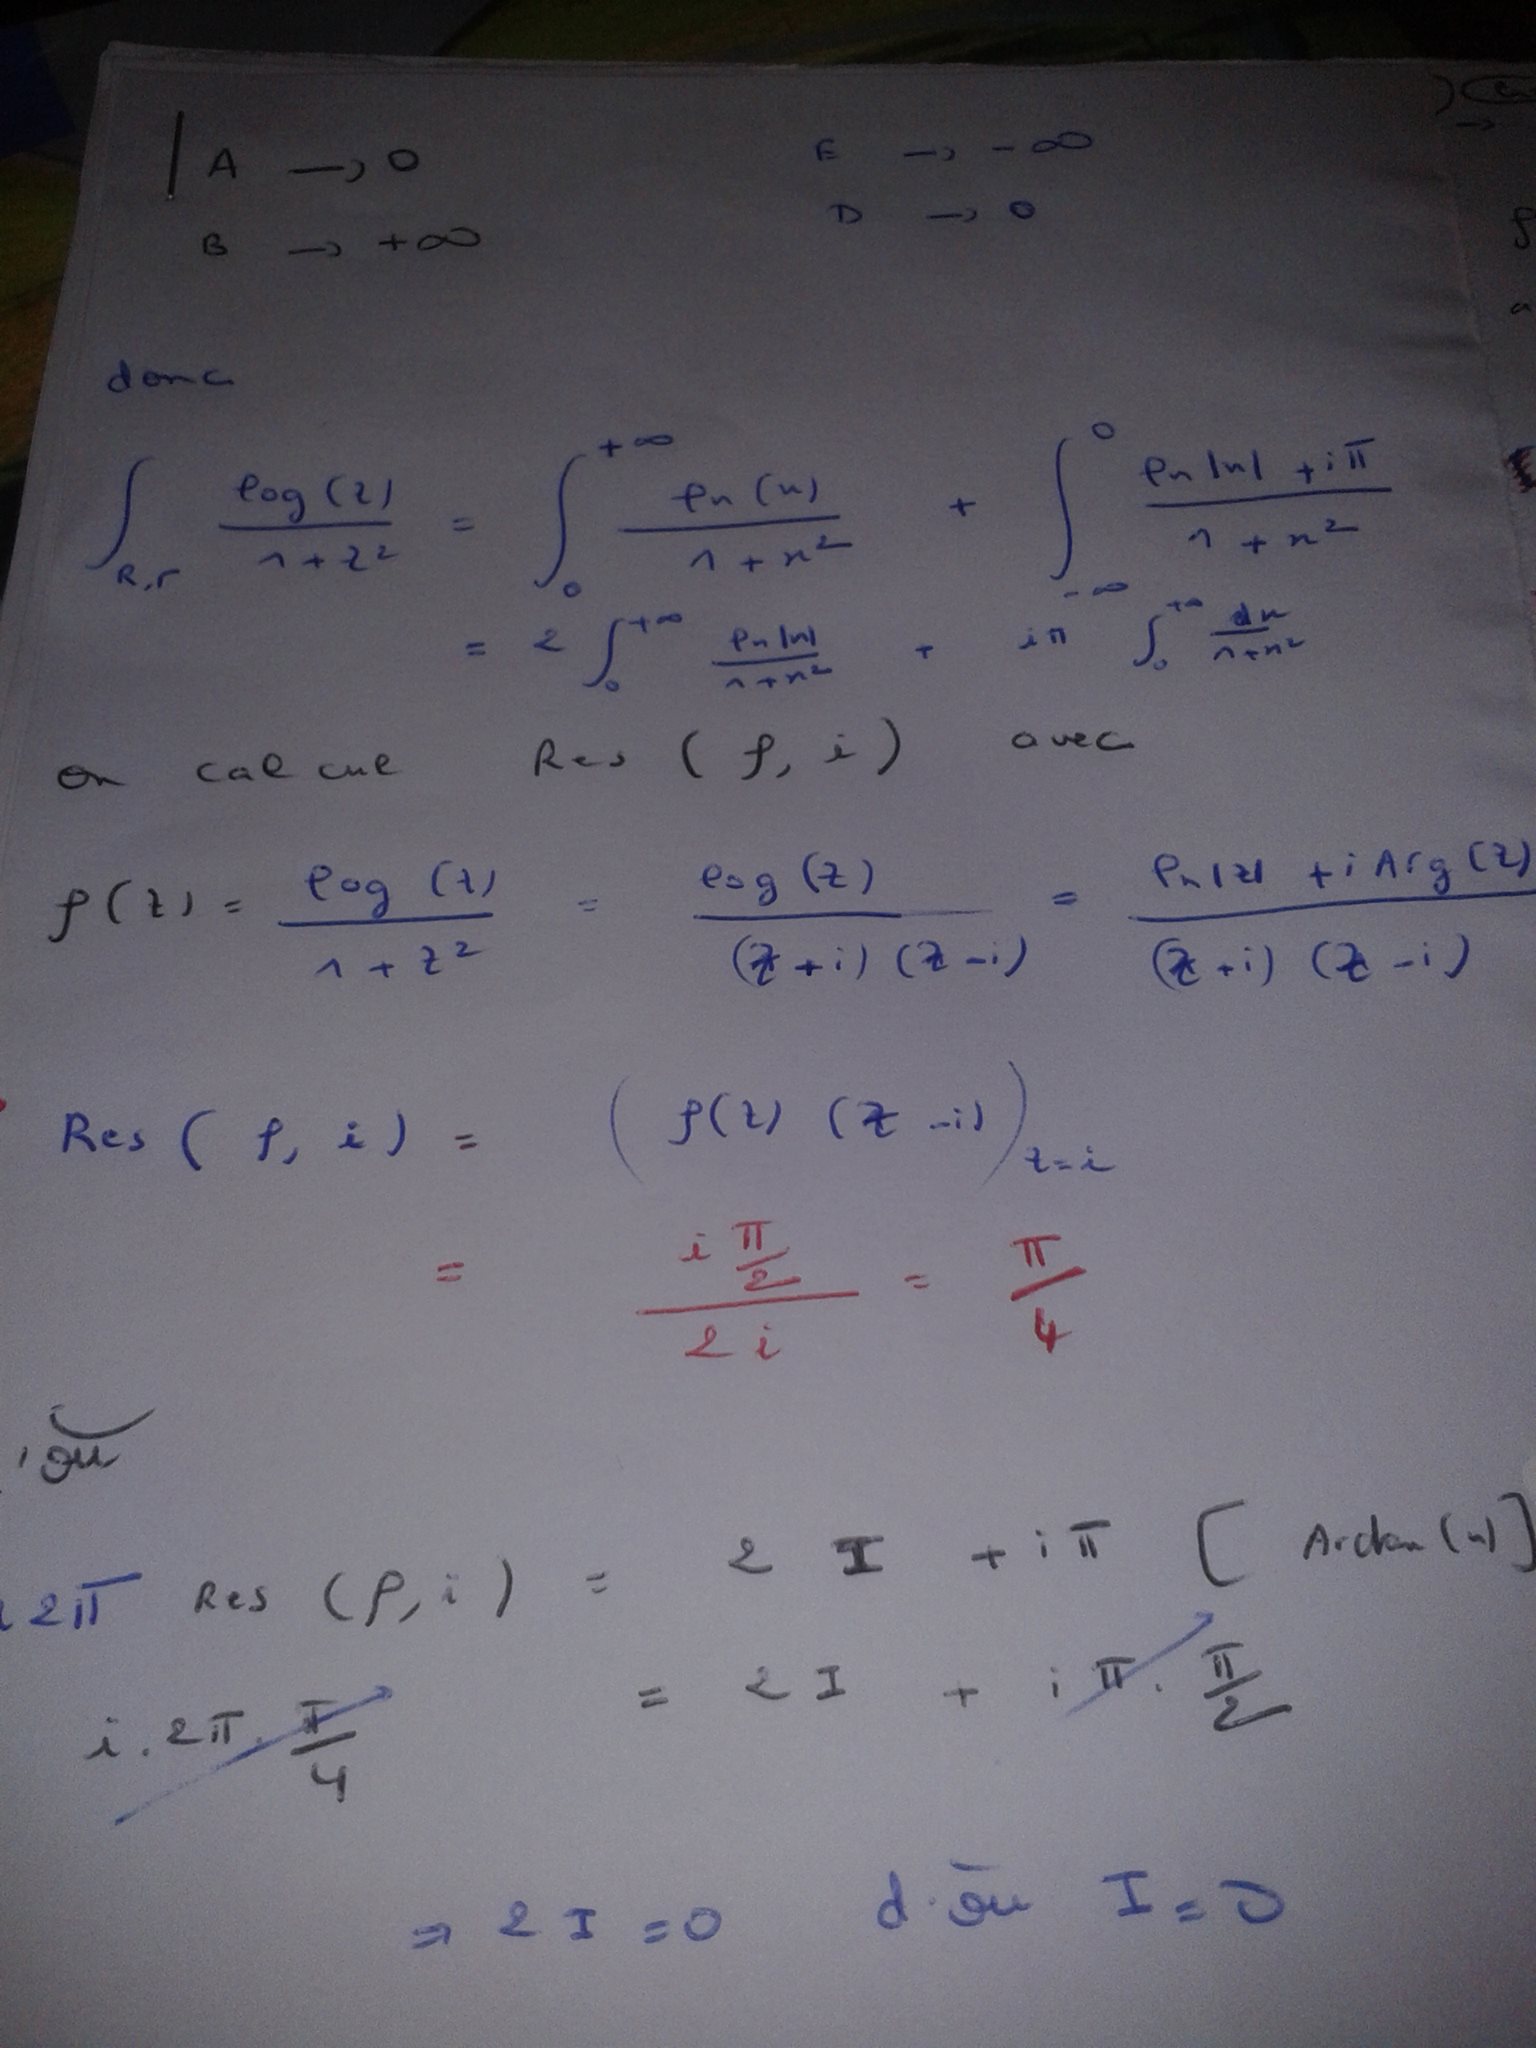 A → 0 E → -∞
B → +∞ D → 0
donc
∫_{R,r} log(z)/(1+z²) = ∫_0^{+∞} ln(x)/(1+x²) + ∫_{-∞}^0 (ln|x| + iπ)/(1+x²)
= 2 ∫_0^{+∞} ln|x|/(1+x²) + iπ ∫_0^{+∞} dx/(1+x²)
on calcul Res (f, i) avec
f(z) = log(z)/(1+z²) = log(z)/((z+i)(z-i)) = (ln|z| + i Arg(z))/((z+i)(z-i))
Res (f, i) = (f(z) (z-i))_{z=i}
= (i π/2)/(2i) = π/4
où
2π Res (f, i) = 2 I + iπ [Arctan(x)]
i.2π.π/4 = 2 I + iπ.π/2
⇒ 2 I = 0 d'où I = 0